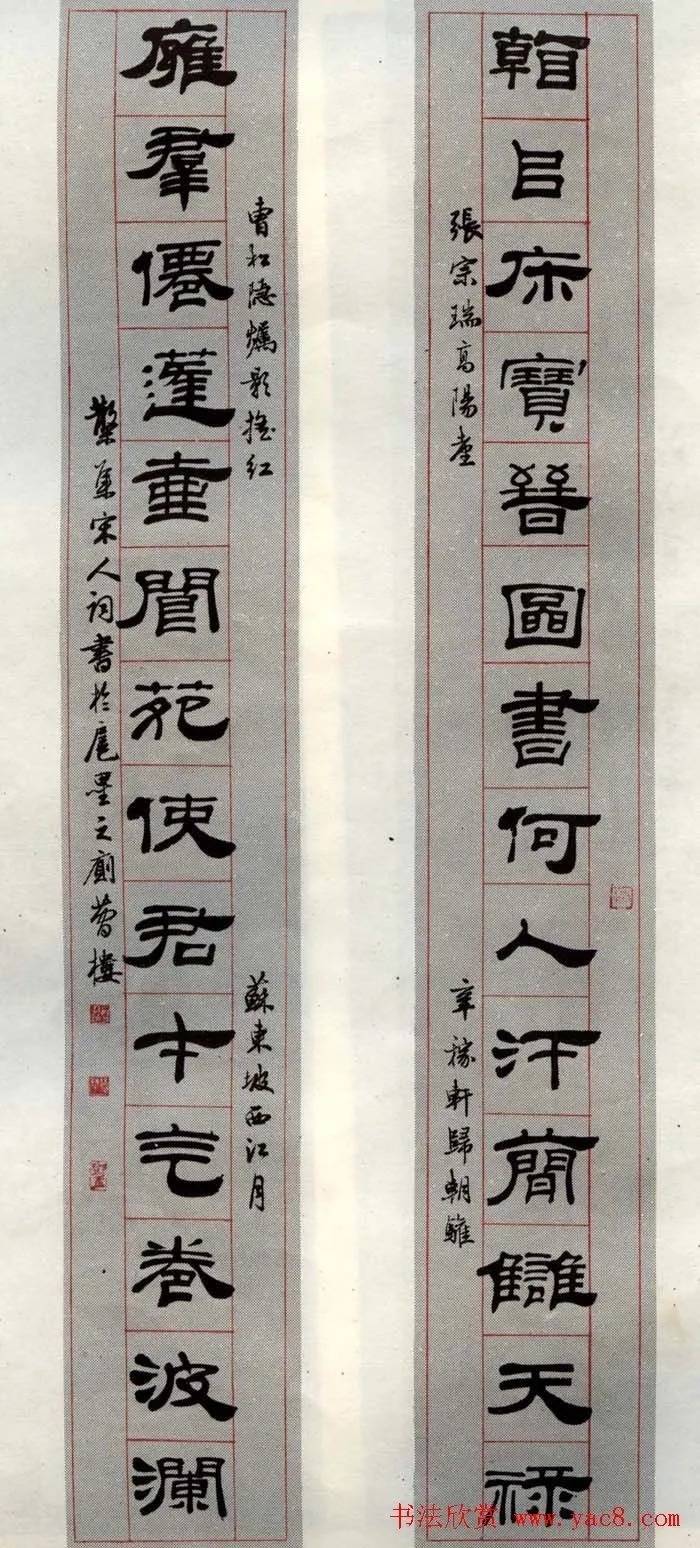 床寶晉圖書何人汗簡讎天禄
張宗瑞高陽臺
辛稼軒歸朝驩
廱羣僊蓬壺閬苑使君才气卷波瀾
曹松隱爥影搖紅
蘇東坡西江月
集宋人詞書於墨之樓
书法欣赏 www.yac8.com